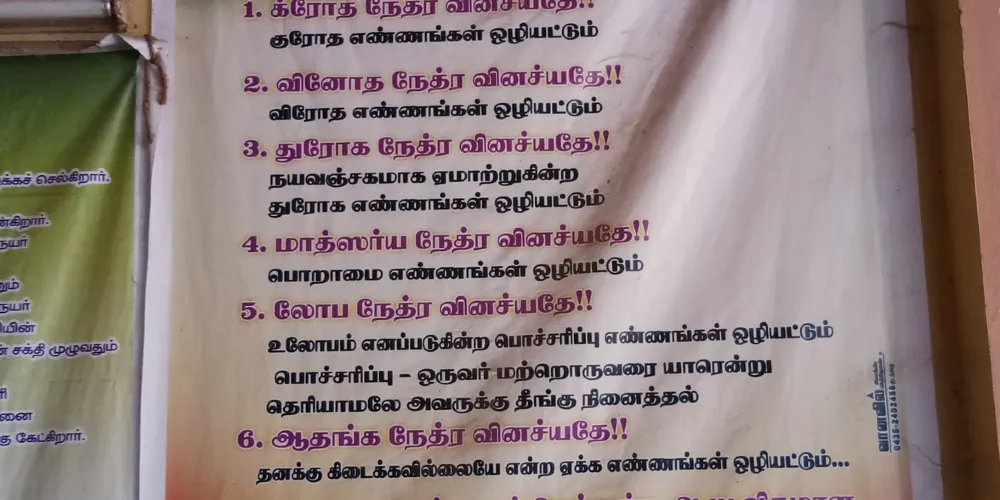 1. க்ரோத நேத்ர வினச்யதே!!
குரோத எண்ணங்கள் ஒழியட்டும்
2. வினோத நேத்ர வினச்யதே!!
விரோத எண்ணங்கள் ஒழியட்டும்
3. துரோக நேத்ர வினச்யதே!!
நயவஞ்சகமாக ஏமாற்றுகின்ற
துரோக எண்ணங்கள் ஒழியட்டும்
4. மாத்ஸர்ய நேத்ர வினச்யதே!!
பொறாமை எண்ணங்கள் ஒழியட்டும்
5. லோப நேத்ர வினச்யதே!!
உலோபம் எனப்படுகின்ற பொச்சரிப்பு எண்ணங்கள் ஒழியட்டும்
பொச்சரிப்பு – ஒருவர் மற்றொருவரை யாரென்று
தெரியாமலே அவருக்கு தீங்கு நினைத்தல்
6. ஆதங்க நேத்ர வினச்யதே!!
தனக்கு கிடைக்கவில்லையே என்ற ஏக்க எண்ணங்கள் ஒழியட்டும்...
செல்கிறார்.
சக்தி முழுவதும்
கேட்கிறார்.
வானவில்
0435-2402456